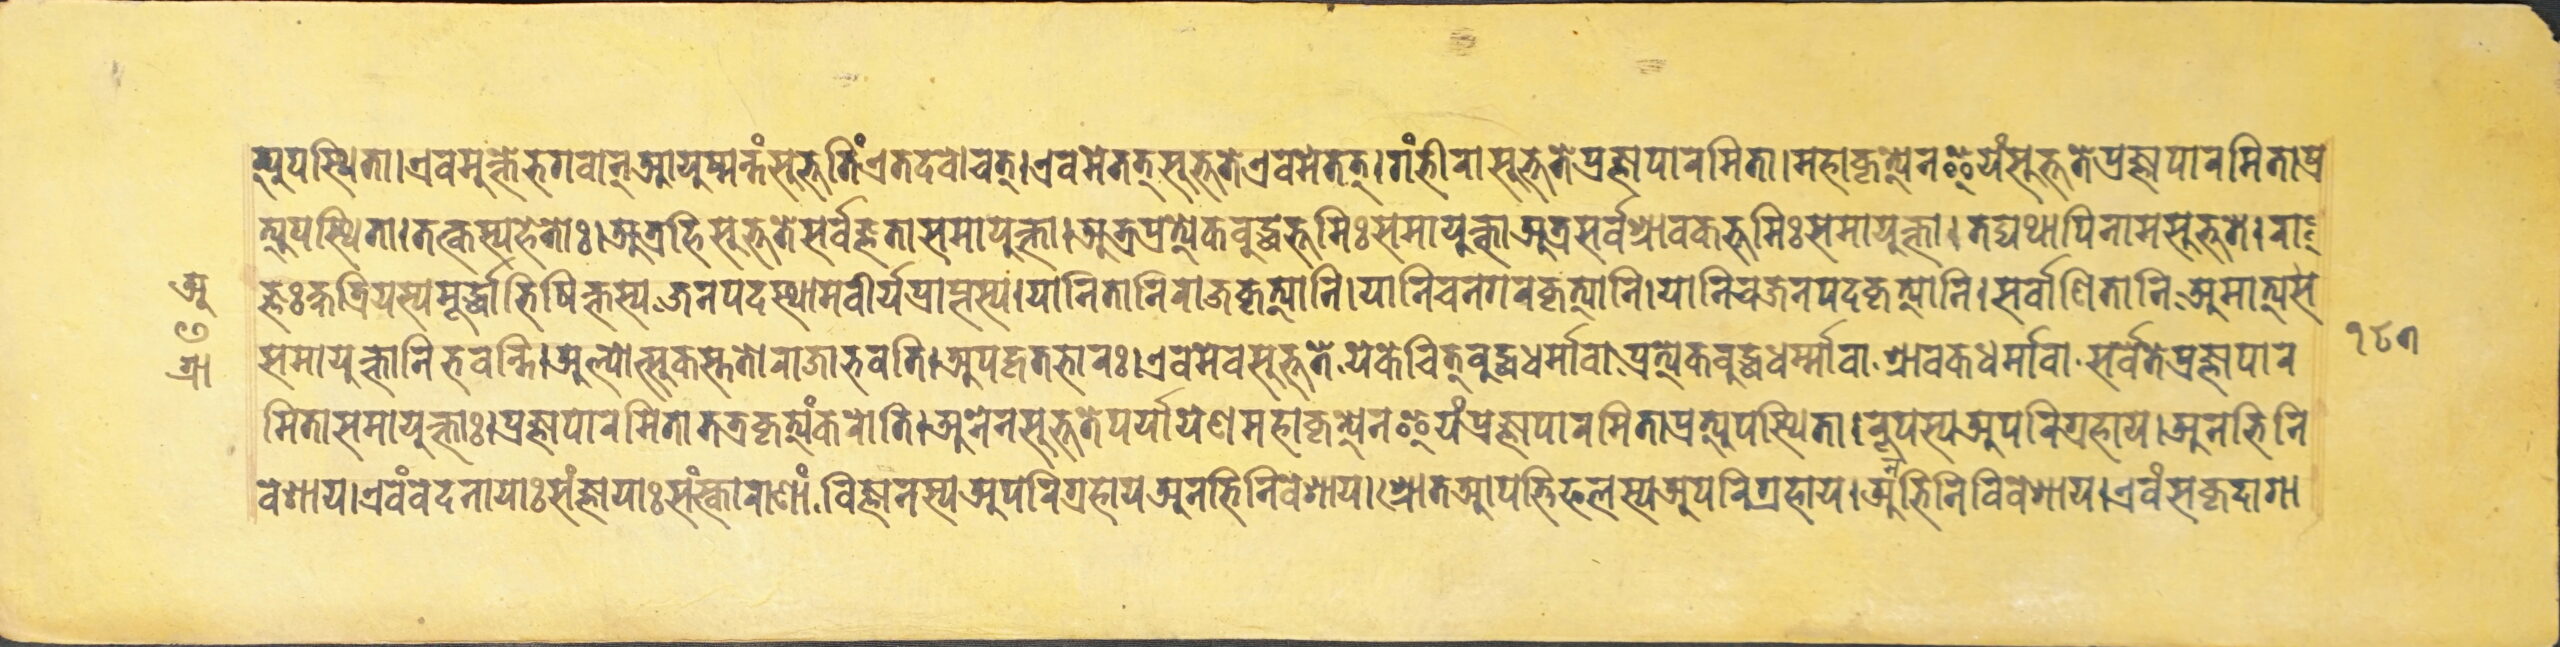 त्युपस्थिता।एवमुक्तेभगवान्आयुष्मन्तंसुभूतिंएतदवोचत्।एवमेतत्सुभूतेएवमेतत्।गंभीरासुभूतेप्रज्ञापारमिता।महाकृत्येनवेयंसुभूतेप्रज्ञापारमिताप्र
त्युपस्थिता।तत्कस्यहेतोः।अत्रहिसुभूतेसर्वज्ञतासमायुक्ता।अत्रप्रत्येकबुद्धभूमिःसमायुक्ताअत्रसर्वश्रावकभूमिःसमायुक्ता।तद्यथापिनामसुभूते।रा
ज्ञःक्षत्रियस्यमूर्द्धाभिषिक्तस्यजनपदस्थामवीर्यप्राप्तस्य।यानितानिराजकृत्यानि।यानिचनगरकृत्यानि।यानिचजनपदकृत्यानि।सर्वाणितानिअमात्यस
समायुक्तानिभवन्ति।अल्पोत्सुकस्ततोराजाभवति।अपहृतभारः।एवमेवसुभूतेयेकेचित्बुद्धधर्मावाप्रत्येकबुद्धधर्म्मावाश्रावकधर्मावासर्वेतेप्रज्ञापार
मितासमायुक्ताः।प्रज्ञापारमितातत्रकृत्यंकरोति।अनेनसुभूतेपर्यायेणमहाकृत्येनवेयंप्रज्ञापारमिताप्रत्युपस्थिता।रूपस्यअपरिग्रहाय।अनभिनि
वेशाय।एवंवेदनायाःसंज्ञायाःसंस्काराणांविज्ञानस्यअपरिग्रहायअनभिनिवेशाय।श्रोतआपत्तिफलस्यअपरिग्रहाय।अनभिनिविवेशाय।एवंसकृदागा
अ
ग्रा
१८१